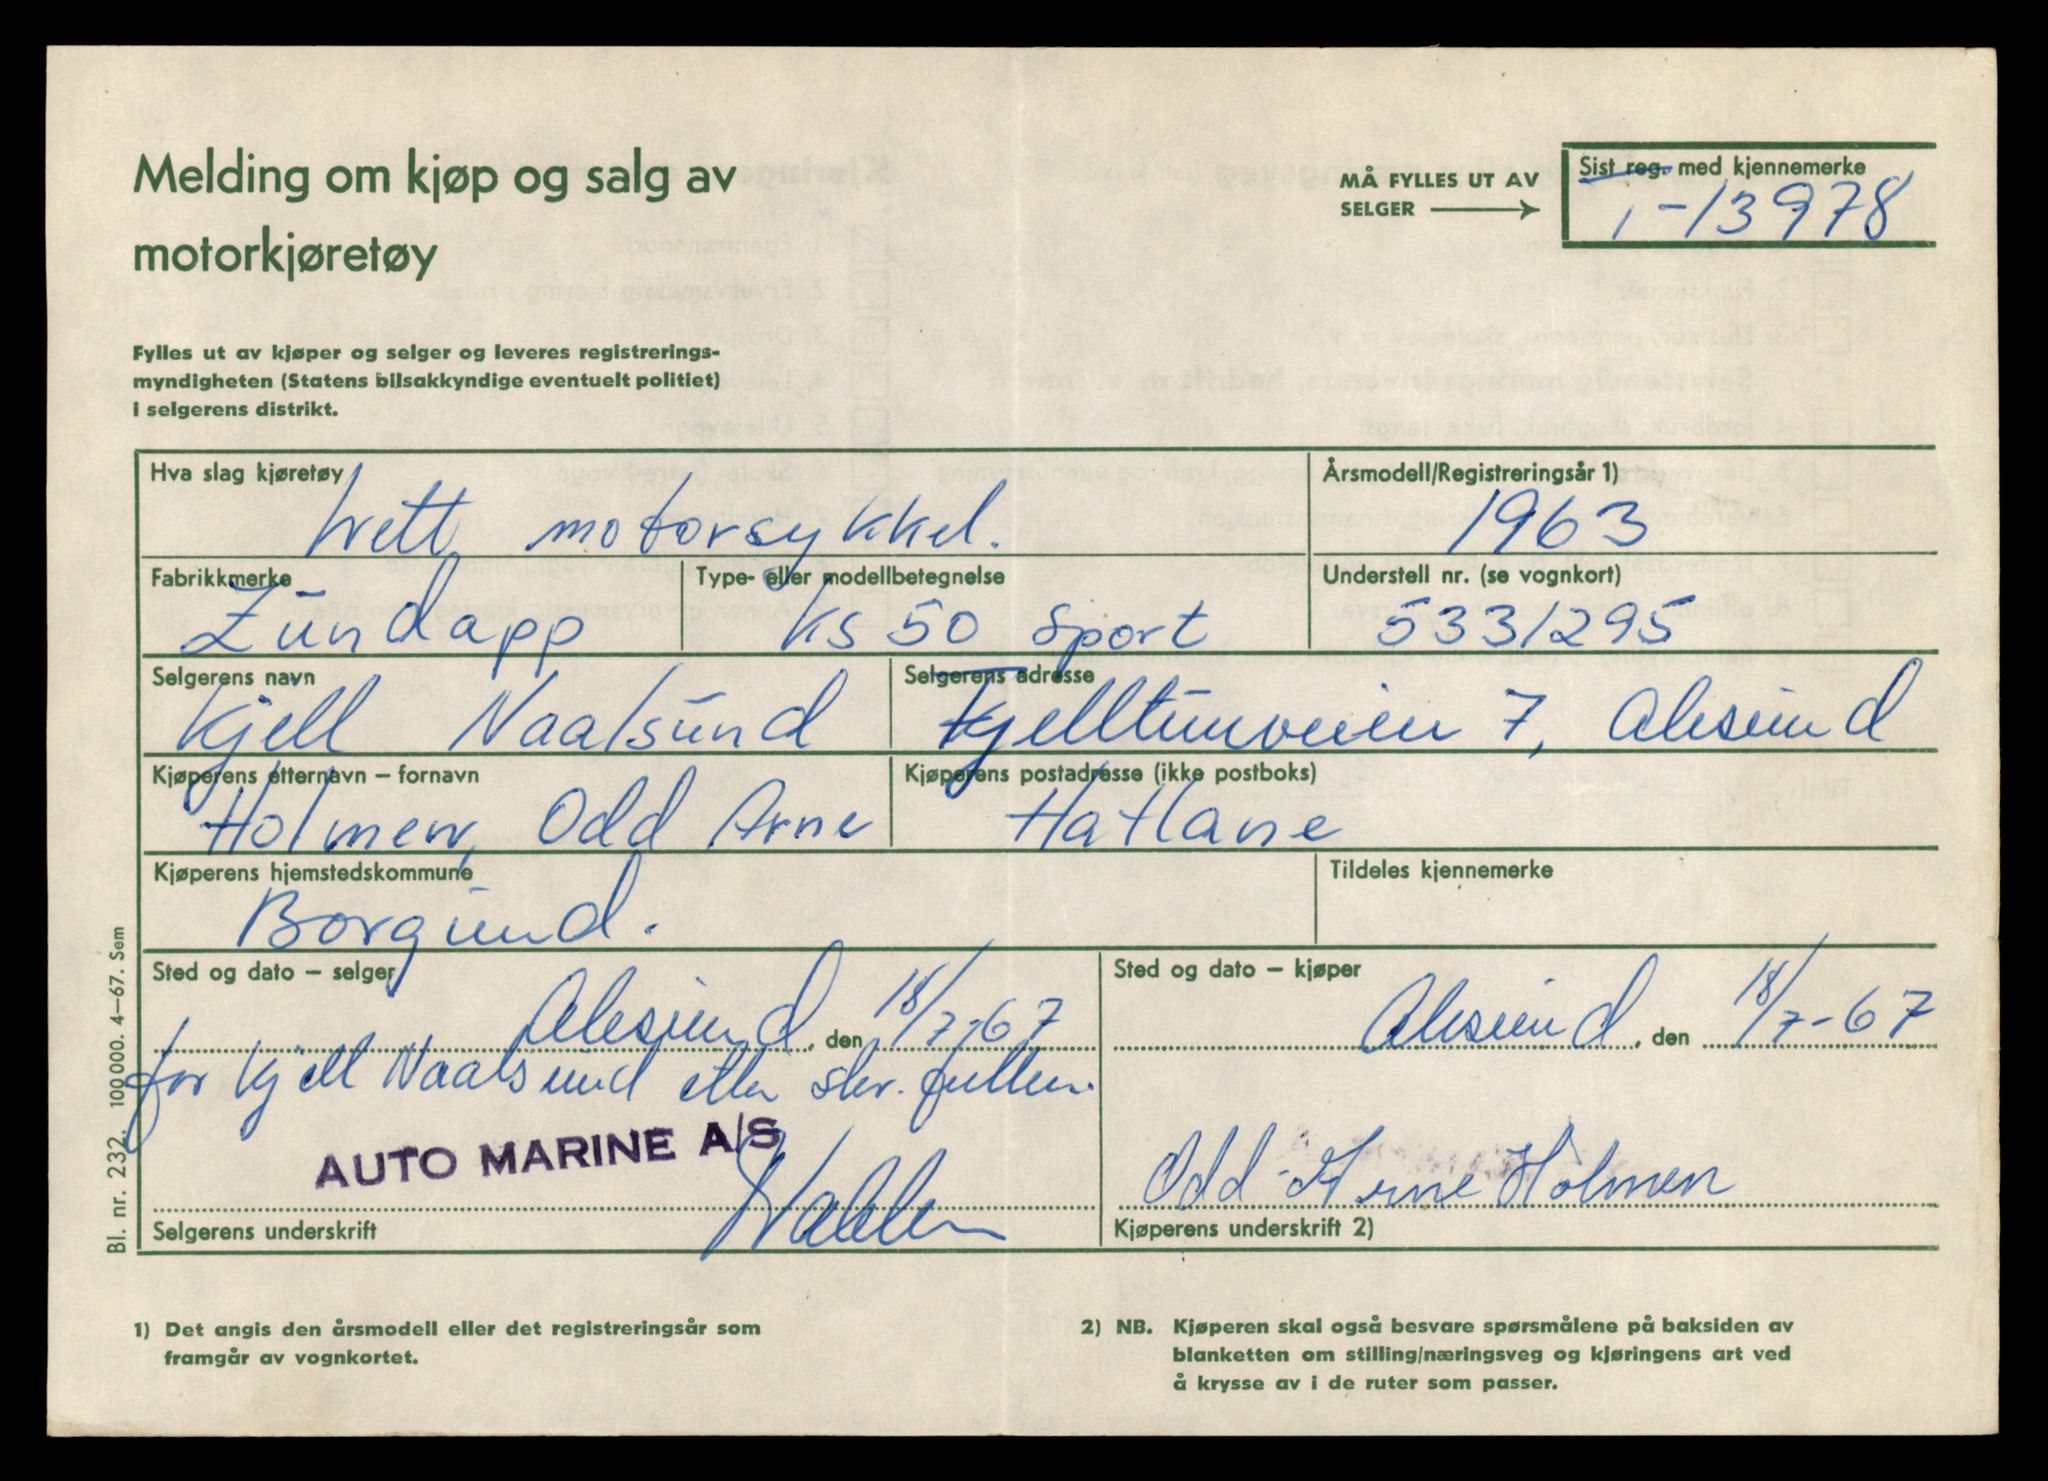 Melding om kjøp og salg av
motorkjøretøy
MÅ FYLLES UT AV
SELGER
Sist reg. med kjennemerke
T-13978
Fylles ut av kjøper og selger og leveres registrerings-
myndigheten (Statens bilsakkyndige eventuelt politiet)
i selgerens distrikt.
Hva slag kjøretøy
lett motorsykkel.
Årsmodell/Registreringsår 1)
1963
Fabrikkmerke
Zündapp
Type- eller modellbetegnelse
KS 50 Sport
Understell nr. (se vognkort)
5331295
Selgerens navn
Kjell Naalsund
Selgerens adresse
Fjelltunveien 7, Alesund
Kjøperens etternavn – fornavn
Holmen, Odd Arne
Kjøperens postadresse (ikke postboks)
Hatlane
Kjøperens hjemstedskommune
Borgund.
Tildeles kjennemerke
Sted og dato – selger
Alesund, den 18/7-67
Sted og dato – kjøper
Alesund, den 18/7-67
for Kjell Naalsund etter skr. fullm.
AUTO MARINE A/S
Selgerens underskrift
Odd-Arne Holmen
Kjøperens underskrift 2)
Bl. nr. 232. 100 000. 4—67. Sem
1) Det angis den årsmodell eller det registreringsår som
framgår av vognkortet.
2) NB. Kjøperen skal også besvare spørsmålene på baksiden av
blanketten om stilling/næringsveg og kjøringens art ved
å krysse av i de ruter som passer.